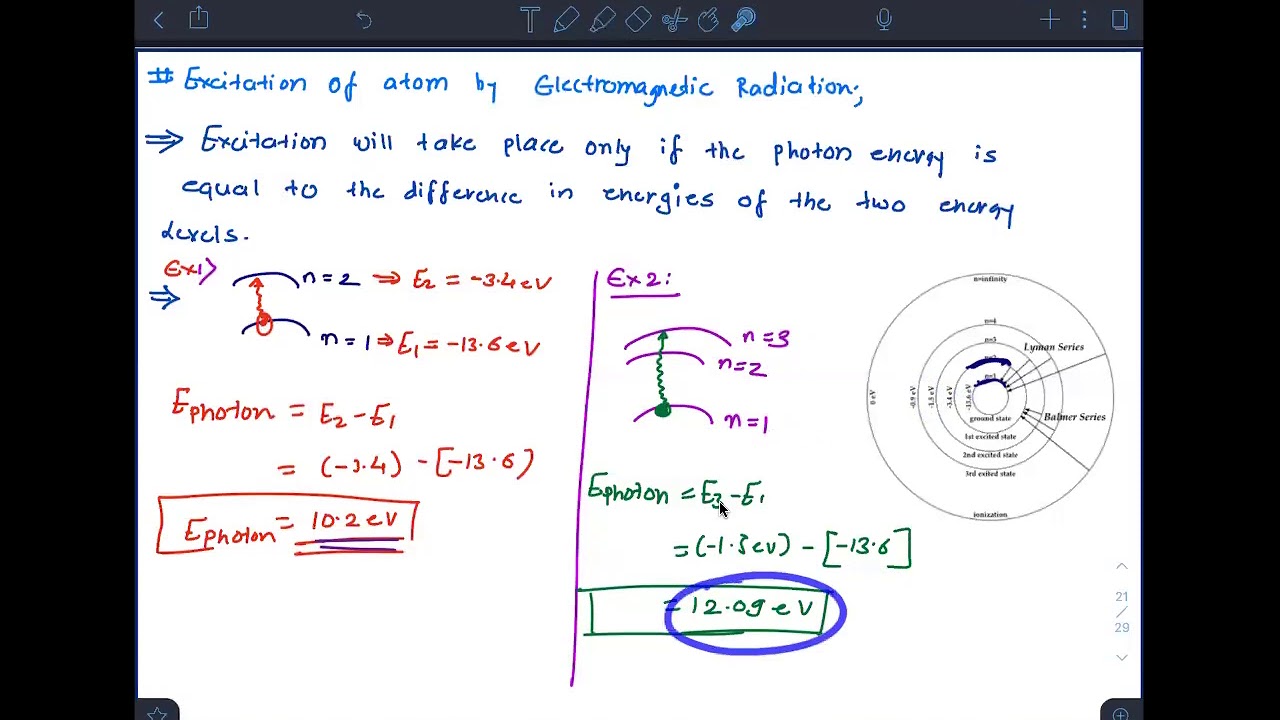 # Excitation of atom by Electromagnetic Radiation;
⇒ Excitation will take place only if the photon energy is
equal to the difference in energies of the two energy
levels.
Ex1)
⇒
n = 2 ⇒ E2 = -3.4 eV
n = 1 ⇒ E1 = -13.6 eV
Ephoton = E2 - E1
= (-3.4) - [-13.6)
Ephoton = 10.2 eV
Ex2:
n = 3
n = 2
n = 1
Ephoton = E3 - E1
= (-1.5 eV) - [-13.6]
= 12.09 eV
n=infinity
n=4
n=3
n=2
n=1
Lyman Series
Balmer Series
0 eV
-0.9 eV
-1.5 eV
-3.4 eV
-13.6 eV
ground state
1st excited state
2nd excited state
3rd exited state
ionization
21
/
29
T